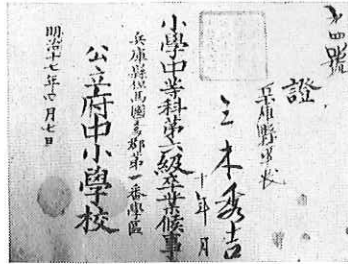 第四號
證
兵庫縣平民
三木秀吉
十年 月
小學中等科第六級卒業候事
兵庫縣但馬國美郡第一番學區
公立府中小學校
明治十七年 月七日